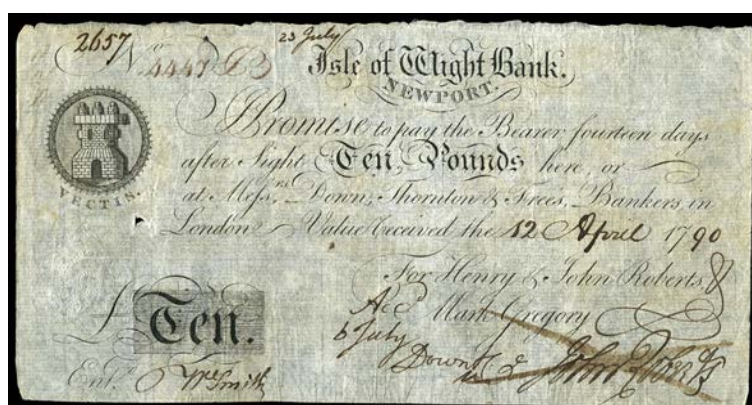 2657
23 July
No 4447 B
Isle of Wight Bank.
NEWPORT.
Promise to pay the Bearer fourteen days
after Sight Ten Pounds here, or
at Messrs. Down, Thornton & Free's, Bankers in
London Value received the 12 April 1790
VECTIS.
For Henry & John Roberts, &
Mark Gregory
£ Ten.
6 July
Down
John Roberts
Entd. Wm Smith